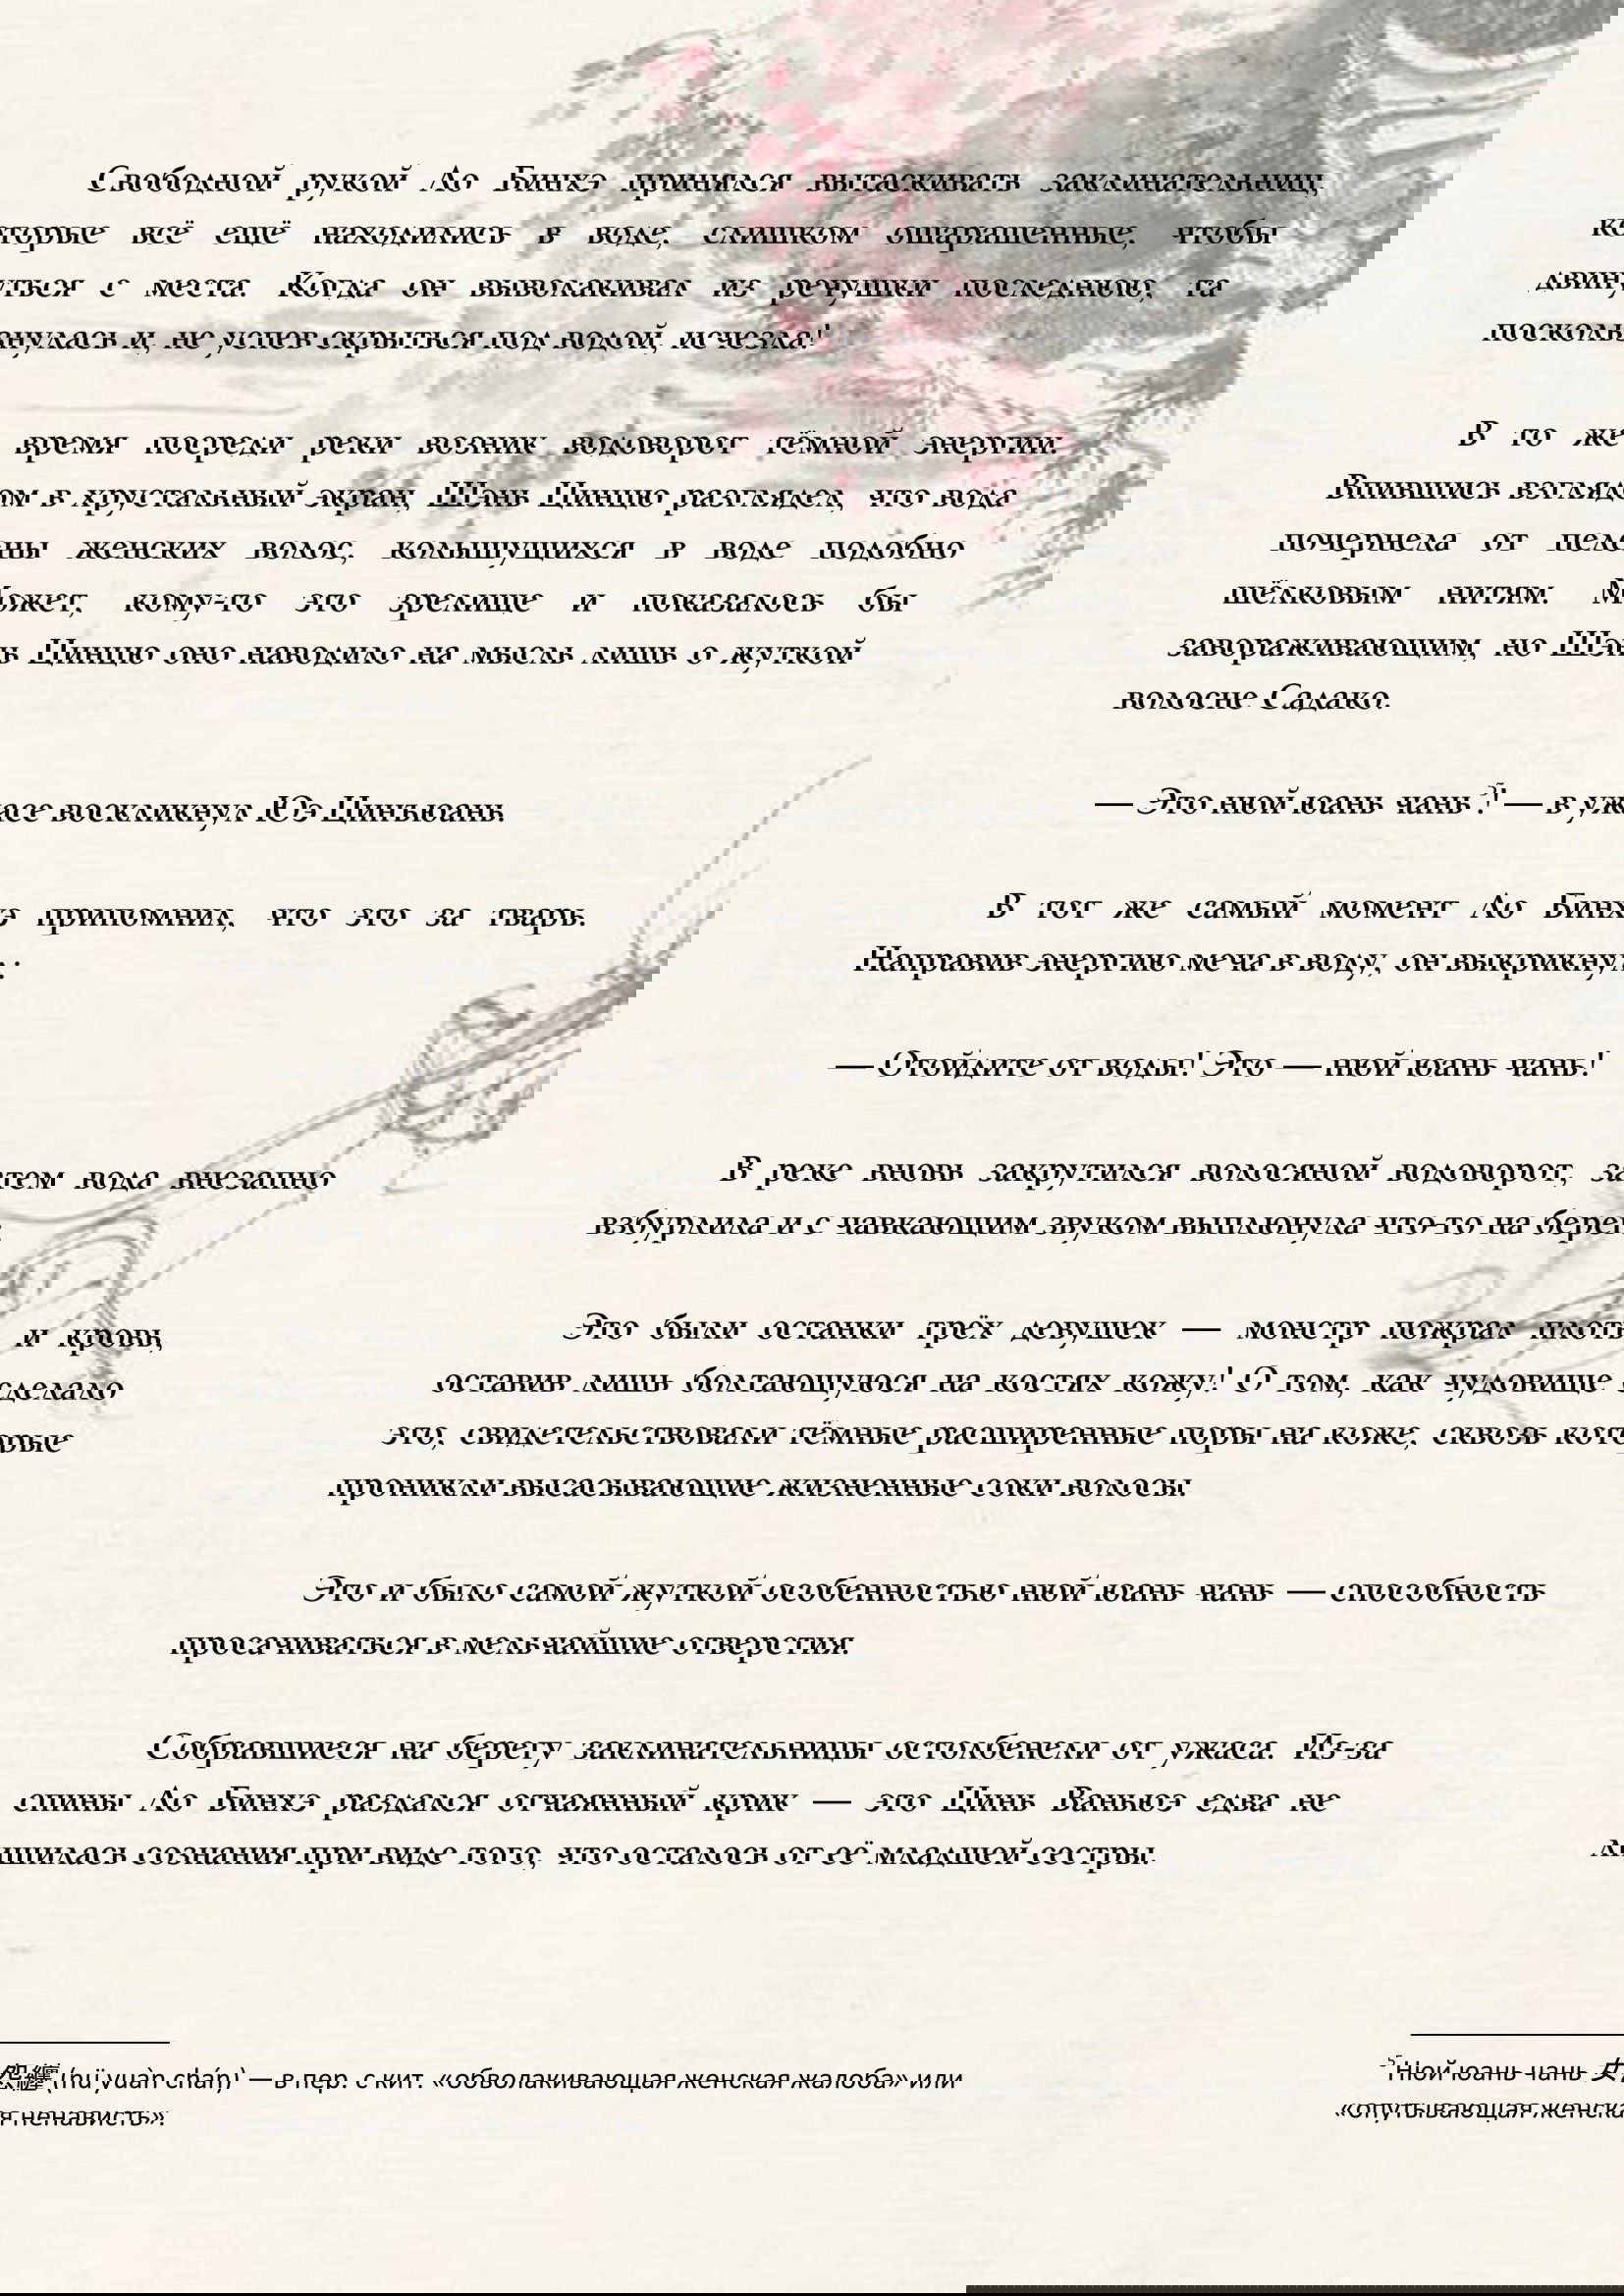 Свободной рукой Ло Бинхэ принялся вытаскивать заклинательниц,
которые всё ещё находились в воде, слишком ошарашенные, чтобы
двинуться с места. Когда он выволакивал из речушки последнюю, та
поскользнулась и, не успев скрыться под водой, исчезла!
В то же время посреди реки возник водоворот тёмной энергии.
Впившись взглядом в хрустальный экран, Шэнь Цинцю разглядел, что вода
почернела от пелены женских волос, колышущихся в воде подобно
шёлковым нитям. Может, кому-то это зрелище и показалось бы
завораживающим, но Шэнь Цинцю оно наводило на мысль лишь о жуткой
волосне Садако.
— Это нюй юань чань! — в ужасе воскликнул Юэ Цинъюань.
В тот же самый момент Ло Бинхэ припомнил, что это за тварь.
Направив энергию меча в воду, он выкрикнул:
— Отойдите от воды! Это — нюй юань чань!
В реке вновь закрутился волосяной водоворот, затем вода внезапно
взбурлила и с чавкающим звуком выплюнула что-то на берег.
Это были останки трёх девушек — монстр пожрал плоть и кровь,
оставив лишь болтающуюся на костях кожу! О том, как чудовище сделало
это, свидетельствовали тёмные расширенные поры на коже, сквозь которые
проникли высасывающие жизненные соки волосы.
Это и было самой жуткой особенностью нюй юань чань — способность
просачиваться в мельчайшие отверстия.
Собравшиеся на берегу заклинательницы остолбенели от ужаса. Из-за
спины Ло Бинхэ раздался отчаянный крик — это Цинь Ваньюэ едва не
лишилась сознания при виде того, что осталось от её младшей сестры.
Нюй юань чань 女怨纏 (nǚ yuàn chán) — в пер. с кит. «обволакивающая женская жалоба» или
«опутывающая женская ненависть».